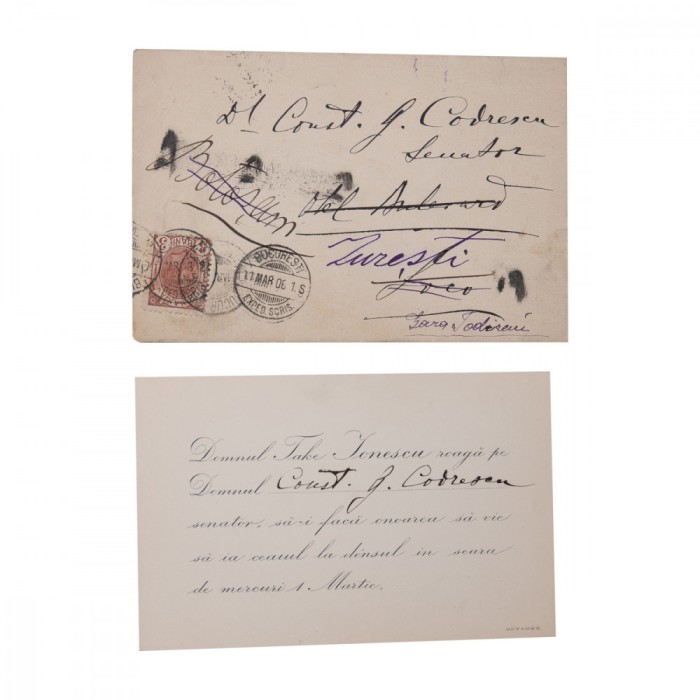 Dl Const. G. Codrescu
Senator
Botoșani
Bulevard
Zurești
Loco
Gara Todireni
BUCURESTI
11 MAR 06 1 S
EXPED. SCRIS.
Domnul Take Ionescu roagă pe
Domnul Const. G. Codrescu
senator, să-i facă onoarea să vie
să ia ceaiul la dînsul in seara
de mercuri 1 Martie.